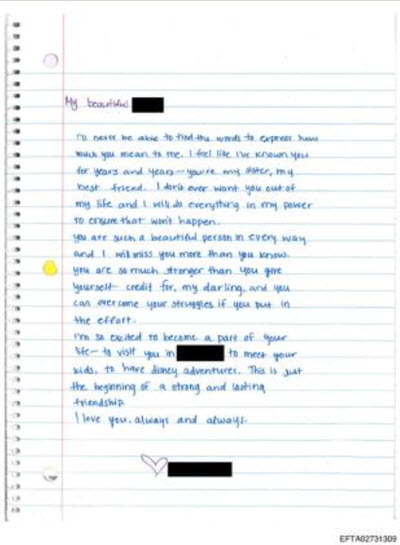 My beautiful
I'd never be able to find the words to express how
much you mean to me. I feel like I've known you
for years and years—you're my sister, my
best friend. I don't ever want you out of
my life and I will do everything in my power
to ensure that won't happen.
You are such a beautiful person in every way
and I will miss you more than you know.
You are so much stronger than you give
yourself credit for, my darling, and you
can overcome your struggles if you put in
the effort.
I'm so excited to become a part of your
life— to visit you in to meet your
kids, to have disney adventures. This is just
the beginning of a strong and lasting
friendship.
I love you, always and always.
EFTA02731309